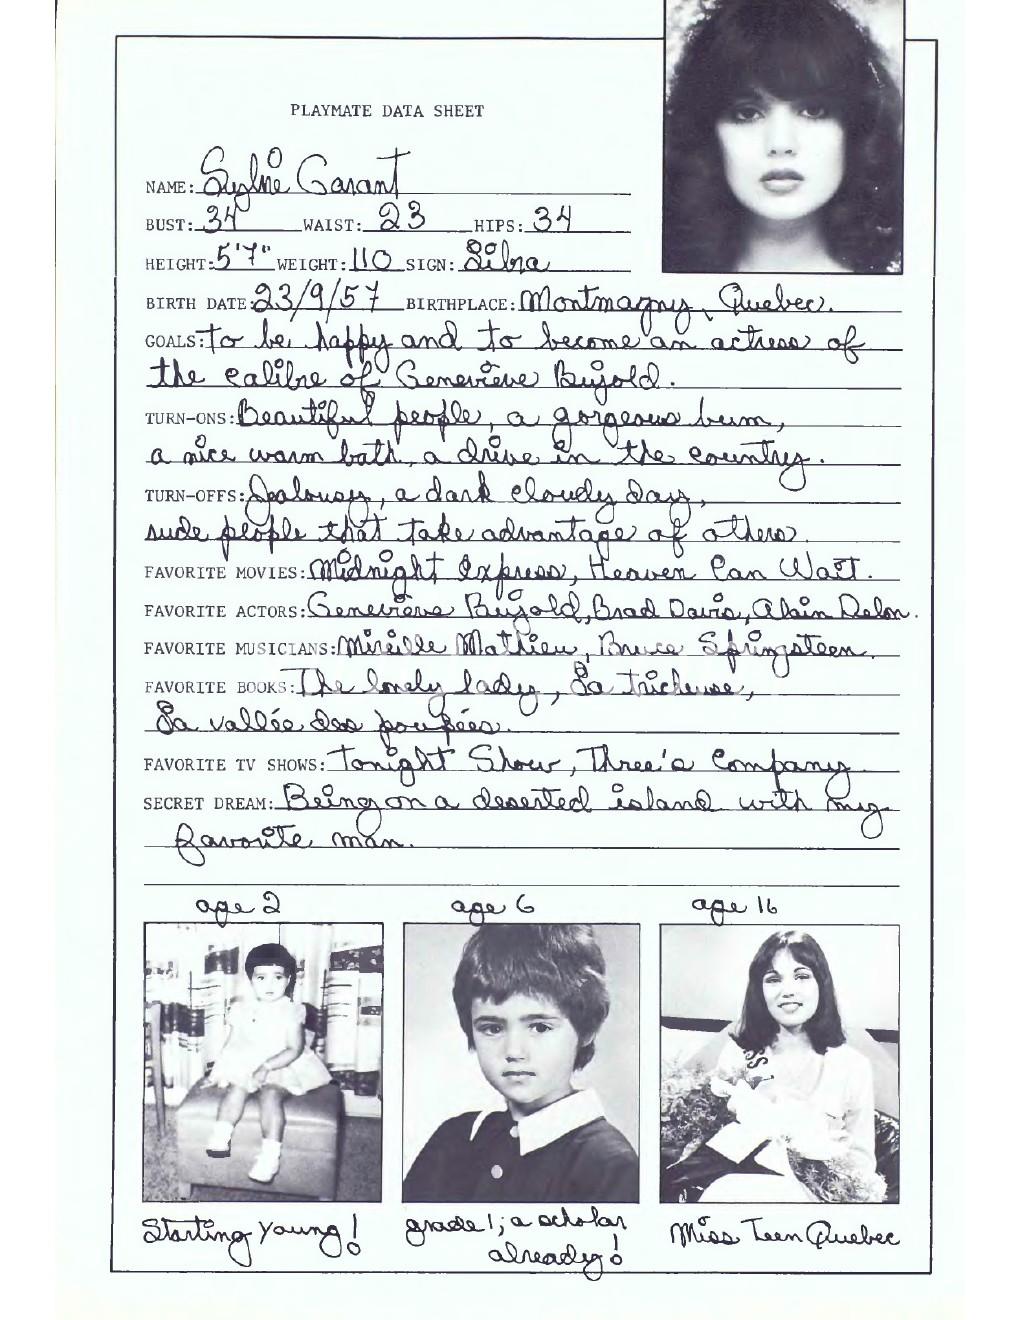 PLAYMATE DATA SHEET
NAME: Sylvie Garant
BUST: 34 WAIST: 23 HIPS: 34
HEIGHT: 5'7" WEIGHT: 110 SIGN: Libra
BIRTH DATE: 23/9/57 BIRTHPLACE: Montmagny, Quebec.
GOALS: To be happy and to become an actress of
the calibre of Geneviève Bujold.
TURN-ONS: Beautiful people, a gorgeous bum,
a nice warm bath, a drive in the country.
TURN-OFFS: Jealousy, a dark cloudy day,
rude people that take advantage of others.
FAVORITE MOVIES: Midnight Express, Heaven Can Wait.
FAVORITE ACTORS: Geneviève Bujold, Brad Davis, Alain Delon.
FAVORITE MUSICIANS: Mireille Mathieu, Bruce Springsteen.
FAVORITE BOOKS: The lonely lady, La tricheuse,
La vallée des poupées.
FAVORITE TV SHOWS: Tonight Show, Three's Company
SECRET DREAM: Being on a deserted island with my
favorite man.
age 2 age 6 age 16
Starting young! grade 1; a scholar already! Miss Teen Quebec